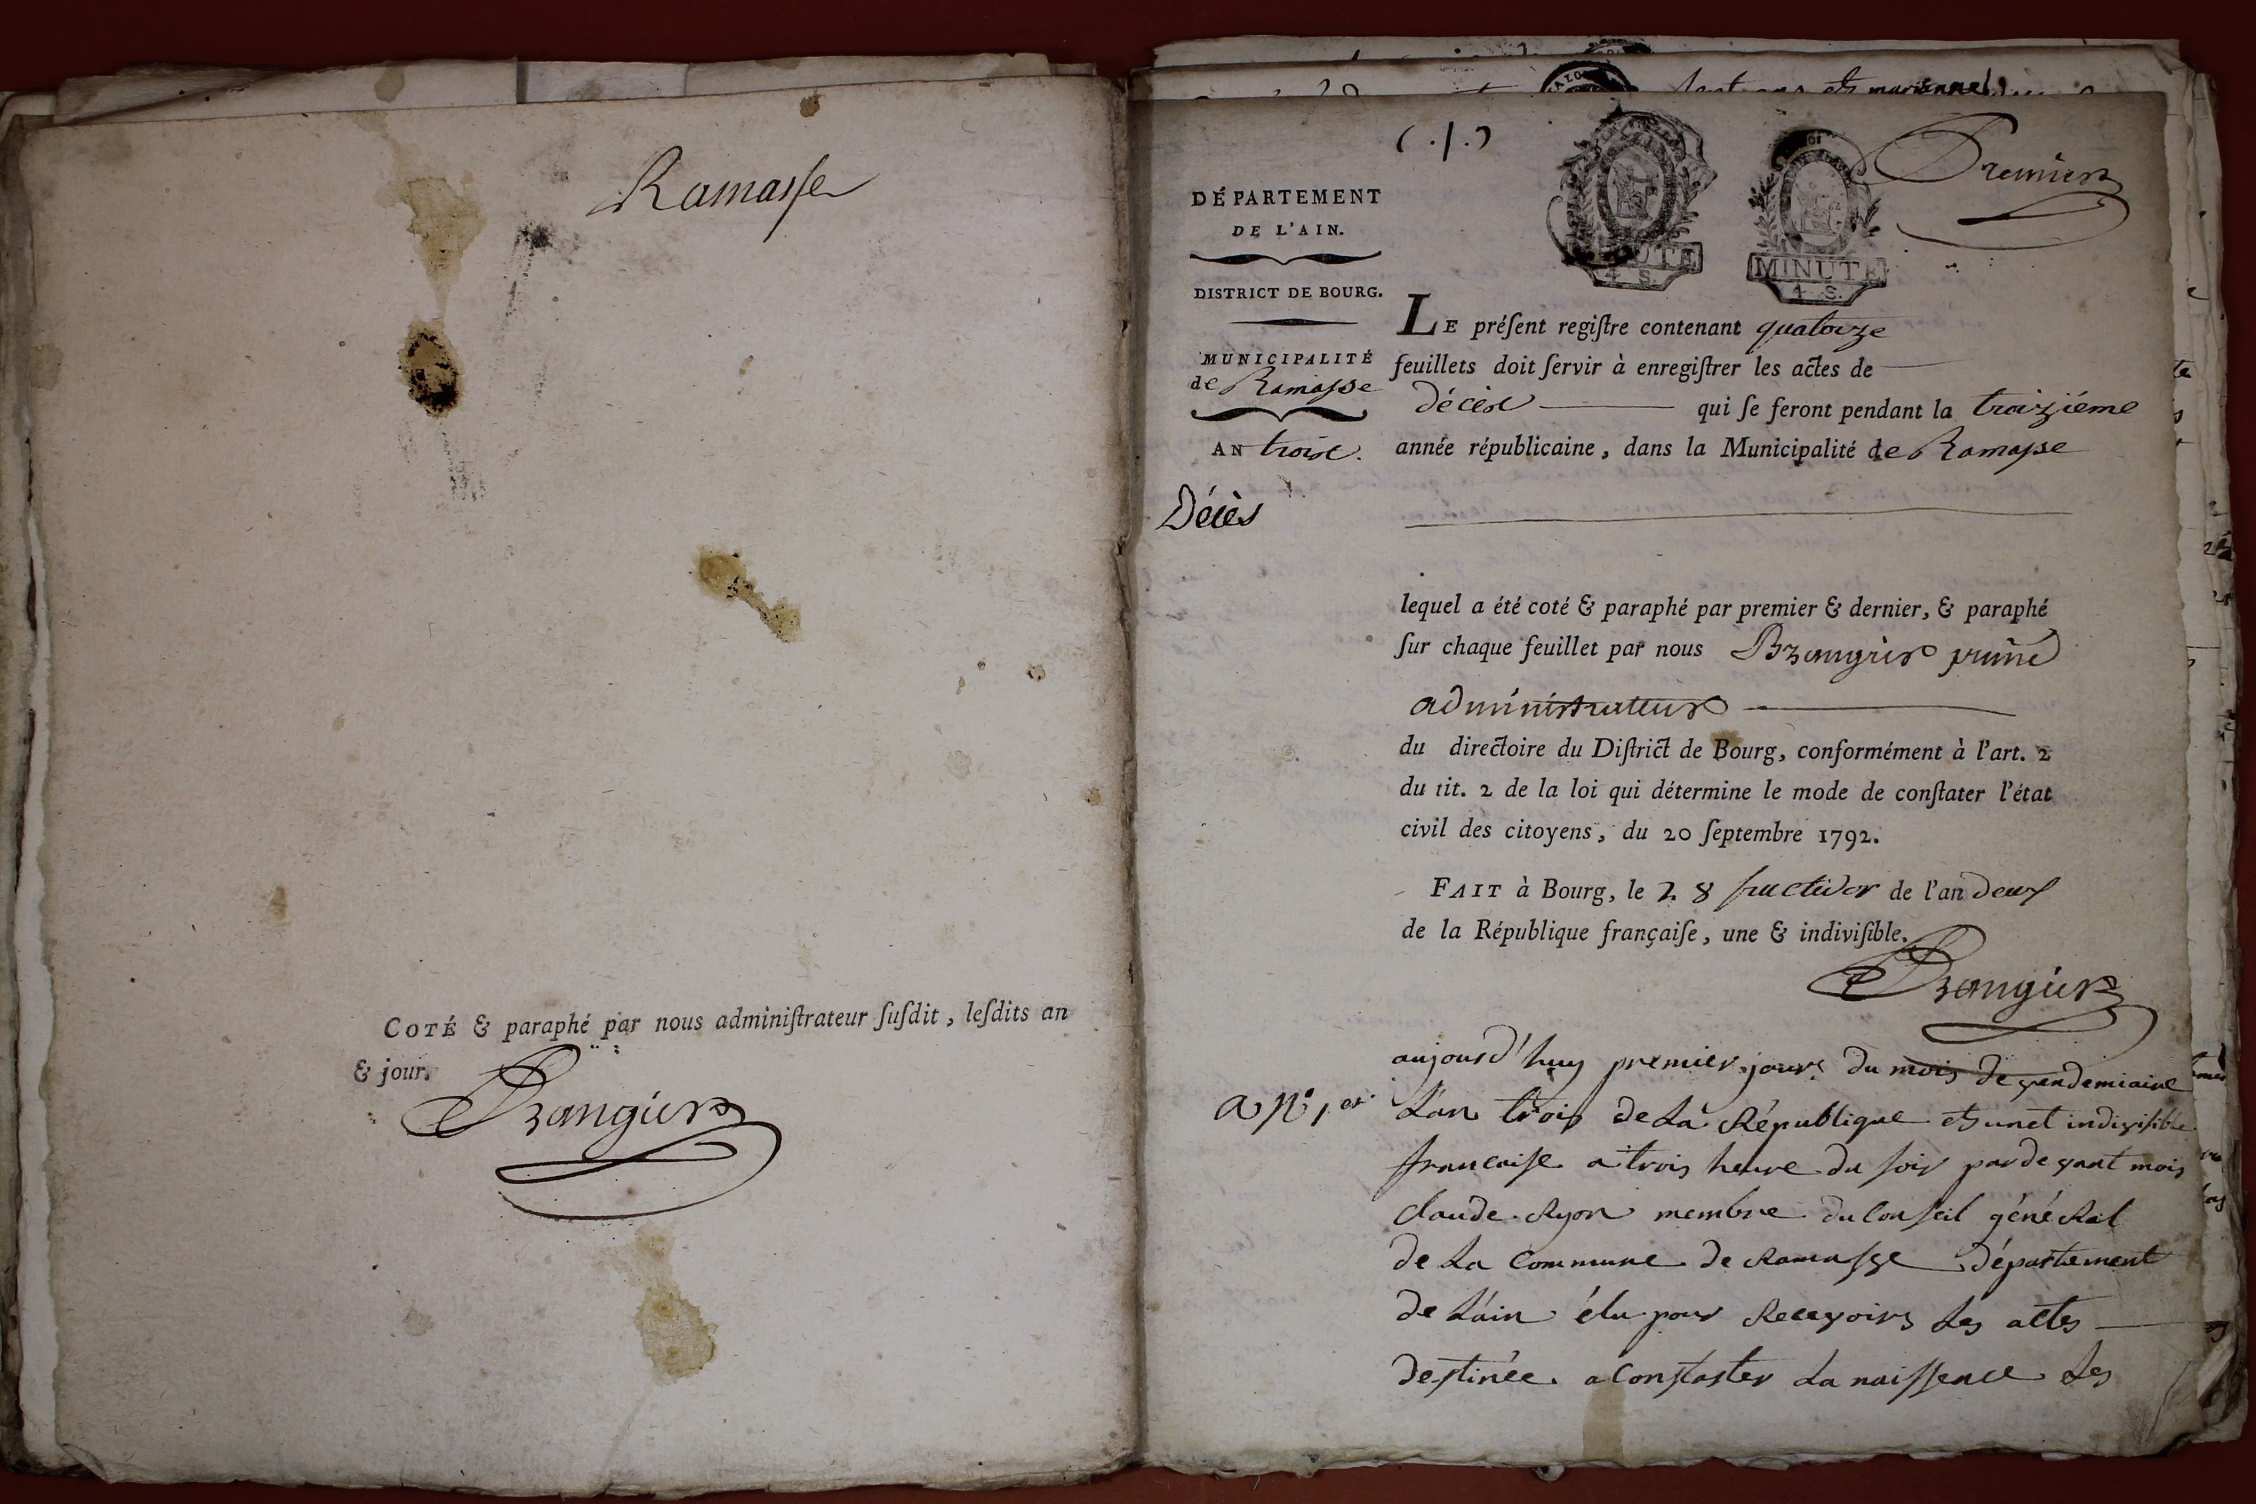 Ramasse
COTÉ & paraphé par nous adminiſtrateur ſuſdit, leſdits an
& jour.
Brangier
(.1.)
Premier
MINUTE
4 S.
MINUTE
4 S.
DÉPARTEMENT
DE L'AIN.
DISTRICT DE BOURG.
MUNICIPALITÉ
de Ramasse
AN trois.
Décès
LE préſent regiſtre contenant quatorze
feuillets doit ſervir à enregiſtrer les actes de
décès qui ſe feront pendant la troiziéme
année républicaine, dans la Municipalité de Ramasse
lequel a été coté & paraphé par premier & dernier, & paraphé
ſur chaque feuillet par nous Brangier
administrateur
du directoire du Diſtrict de Bourg, conformément à l'art. 2
du tit. 2 de la loi qui détermine le mode de conſtater l'état
civil des citoyens, du 20 ſeptembre 1792.
FAIT à Bourg, le 28 fructidor de l'an deux
de la République françaiſe, une & indiviſible.
Brangier
aujourd'huy premier jours du mois de vendemiaire
a N° 1er
L'an trois de La République et unet indivisible
francaise a trois heure du soir pardevant mois
claude Ryon membre du Conseil général
de La Commune de Ramasse département
de L'ain élu pour Recevoirs Les actes
destinée a Constaster La naissence Les